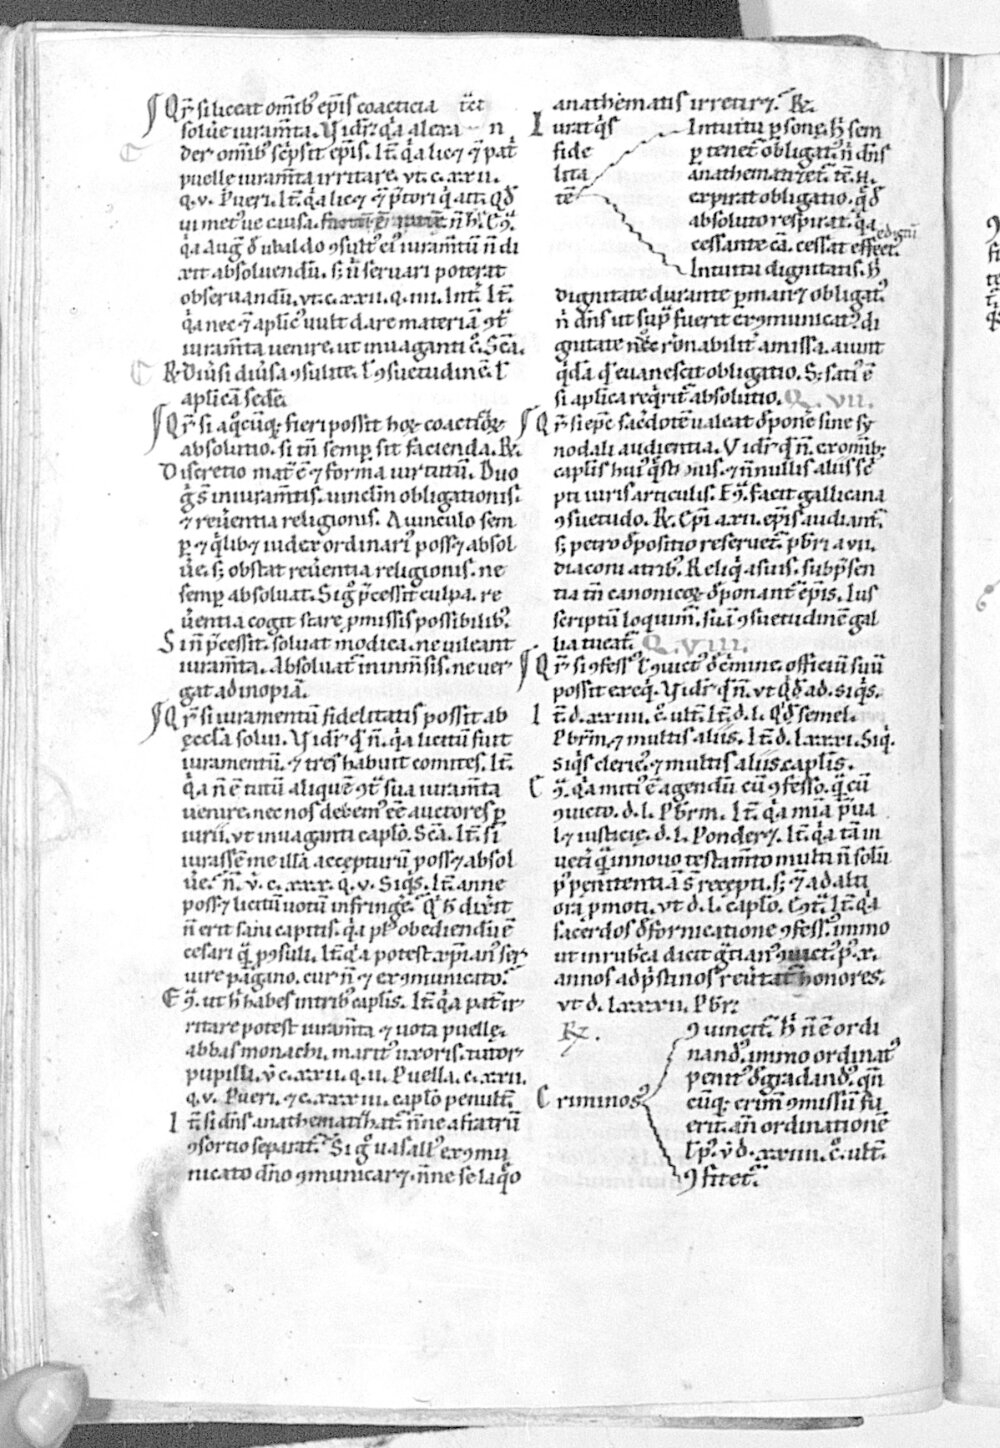 Qr̄ si liceat om̄ibꝰ ep̄is coacticia
soluere iuram̄ta. Vidr̄ qͥa alexa n
der om̄ibꝰ sc̄psit ep̄is. It̄. qͥa lic&
puelle iuram̄ta irritare. vt. c. xxii.
q. v. Pueri. It̄. qͥa lic&
ui metꝰ ue causa.
qͥa auḡ
xit absoluendū. s; n̄ seruari poterat
obseruandū. vt. c. xxii. q. iiii. Int̄. It̄.
qͥa nec aplicꝰ uult dare materiā ꝯt̄
iuram̄ta uenire. ut in uaganti c̄. Sc̄a.
R̷. Diuersi diuersa ꝯsulite. l̄ ꝯsuetudinē. l̄
aplicā sedē.
Qr̄ si a qͦcūq; fieri possit hoꝝ coactioꝝ
absolutio. si tn̄ semp̄ sit facienda. R̷.
Discretio mat̄ ē ⁊ forma uirtutū. Duo
g̊ s̄ in iuram̄tis. uinclm̄ obligationis.
⁊ reuerentia religionis. A uinculo sem
ꝑ ⁊ qͥlib& iudex ordinariꝰ poss& absol
uere. s; obstat reuerentia religionis. ne
semꝑ absoluat. Si g̊ p̄cessit culpa. re
uerentia cogit stare ꝓmissis possibilibꝰ.
Si n̄ p̄cessit. soluat modica. ne uileant
iuram̄ta. Absoluat̄ in inmēsis. ne uer-
gat ad inopiā.
Qr̄ si iuramentum fidelitatis possit ab
ecclā solui. Vidr̄ qͥ n̄. qͥa licitū fuit
iuramentū. ⁊ tres habuit comites. It̄.
qͥa n̄ ē tutū aliquē ꝯt̄ sua iuram̄ta
uenire. nec nos debemꝰ eē auctores ꝑ
iurii. vt in uaganti caplo. Sc̄a. It̄. si
iurassē me illā accepturū poss& absol
ui. n̄. v̄. c. xxx. q. v. Siqͥs. It̄. an ne
poss& licitū uotū infringe. Qͥ h̄ dixit
n̄ erit sani capitis. qͥa plꝰ obediendū ē
cesari qͣ ꝓsuli. It̄. qͥa potest xp̄ianꝰ ser
uire pagano. cur n̄ ⁊ exꝯmunicato.
Eꝯͣ. ut h̄ habes in tribꝰ caplis. It̄. qͥa pat̄ ir-
ritare potest iuram̄ta ⁊ uota puelle.
abbas monachi. maritꝰ uxoris. tutor
pupilli. v̄. c. xxii. q. ii. Puella. c. xxii.
q. v. Pueri. ⁊ c. xxxiii. caplo penult̄.
It̄. si dn̄s anathematihat̄. n̄ne a fratrū
ꝯsortio separat̄. Si g̊ uasallꝰ exꝯmu
nicato dn̄o ꝯmunicar&. n̄ne se laqͦo
anathematis irretir&. R̷.
Iurat qͥs
fide
lita
tē
Intuitu ꝑsone. h̄ sem
ꝑ tenet̄ obligatꝰ. n̄ dn̄s
anathematizet̄. tē. n.
expirat obligatio. qͥd
absoluto respirat. qͥa
cessante cā. cessat effect̄.
Intuitu dignitatis. h̄
dignitate durante ꝑman& obligatꝰ.
n̄ dn̄s ut supͣ fuerit exꝯmunicatꝰ. di
gnitate u̾ ronabilit̄ amissa. aiunt
qͥda qͥ euanescit obligatio. S; satiꝰ ē
si aplica reqͥrit̄ absolutio. Q. VII.
Qr̄ si ep̄c sac̄dotē ualeat deponere sine sy
nodali audientia. Vidr̄ qͥ n̄. ex om̄ibꝫ
caplis huiꝰ qͥstionis. ⁊ n̄nullis aliis sc̄
pti iuris articulis. Eꝯͣ. facit gallicana
ꝯsuetudo. R̷. Ep̄i a xii. ep̄is audiant̄.
s; petro depositio reseruet̄. pbr̄i a vii.
diaconi a tribꝰ. Reliqͥ a suis. sub p̄sen
tia tn̄ canonicoꝝ deponant̄ ep̄is. Ius
scriptū loquim̄. suā ꝯsuetudinē gal
lia tueat̄. Q. VIII.
Qr̄ si ꝯfessꝰ l̄ ꝯuictꝰ de c̄mine. officiū suū
possit exeqͥ. Vidr̄ qͥ n̄. vt Qͥd ad. siqͥs.
It̄. d. xxiiii. c̄. ult̄. It̄. d. l. Qͥd semel.
Pbr̄m. ⁊ multis aliis. It̄. d. lxxxi. Siqͥ.
Siqͥs cleric̄. ⁊ multis aliis caplis.
Eꝯͣ. qͥa mitiꝰ ē agendū cū ꝯfesso. qͣ cū
ꝯuicto. d. l. Pbr̄m. It̄. qͥa mīa p̄ua
l& iusticie. d. l. Ponder&. It̄. qͥa tā in
ueti qͣ in nouo testam̄to multi n̄ solū
pꝰ penitentiā s̄ recepti. s; ⁊ ad alti
ora ꝓmoti. vt d. l. caplo. Eꝯͣ. It̄. qͥa
sacerdos de fornicatione ꝯfessꝰ. immo
ut in rubͥca dicit gͣtianꝰ ꝯuictꝰ. pꝰ. x.
annos ad pͥstinos reuertat̄ honores.
vt d. lxxxii. Pbr̄.
R̷.
Criminosꝰ
ꝯuincit̄. h̄ n̄ ē ordi
nandꝰ. immo ordinatꝰ
penitꝰ degradandꝰ. qn̄
cūq; crim̄ ꝯmissū fu
erit. an̄ ordinationē
l̄ pꝰ. v̄ d. xxiiii. c̄. ult̄.
ꝯfitet̄.